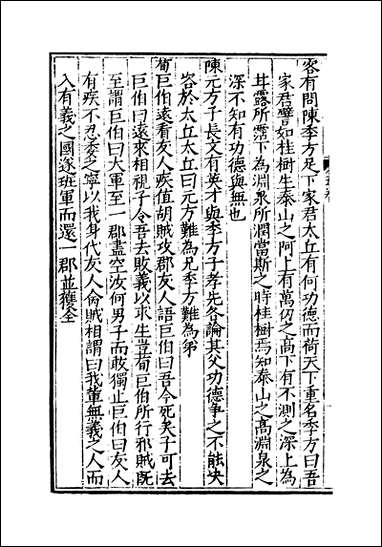 客有問陳季方足下家君太丘有何功德而荷天下重名季方曰吾
家君譬如桂樹生泰山之阿上有萬仞之高下有不測之深上為
甘露所霑下為淵泉所潤當斯之時桂樹焉知泰山之高淵泉之
深不知有功德與無也
陳元方子長文有英才與季方子孝先各論其父功德爭之不能决
咨於太丘太丘曰元方難為兄季方難為弟
荀巨伯遠看友人疾值胡賊攻郡友人語巨伯曰吾今死矣子可去
巨伯曰遠來相視子令吾去敗義以求生豈荀巨伯所行邪賊旣
至謂巨伯曰大軍至一郡盡空汝何男子而敢獨止巨伯曰友人
有疾不忍委之寧以我身代友人命賊相謂曰我軰無義之人而
入有義之國遂班軍而還一郡並獲全